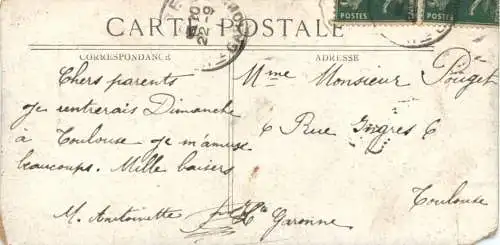 CARTE POSTALE
POSTES POSTES
22-9
CORRESPONDANCE
ADRESSE
Chers parents
Je rentrerais Dimanche
à Toulouse je m'amuse
beaucoups. Mille baisers
M. Antoinette
Mme Monsieur Pouget
6 Rue Ingres 6
Toulouse
Hte Garonne